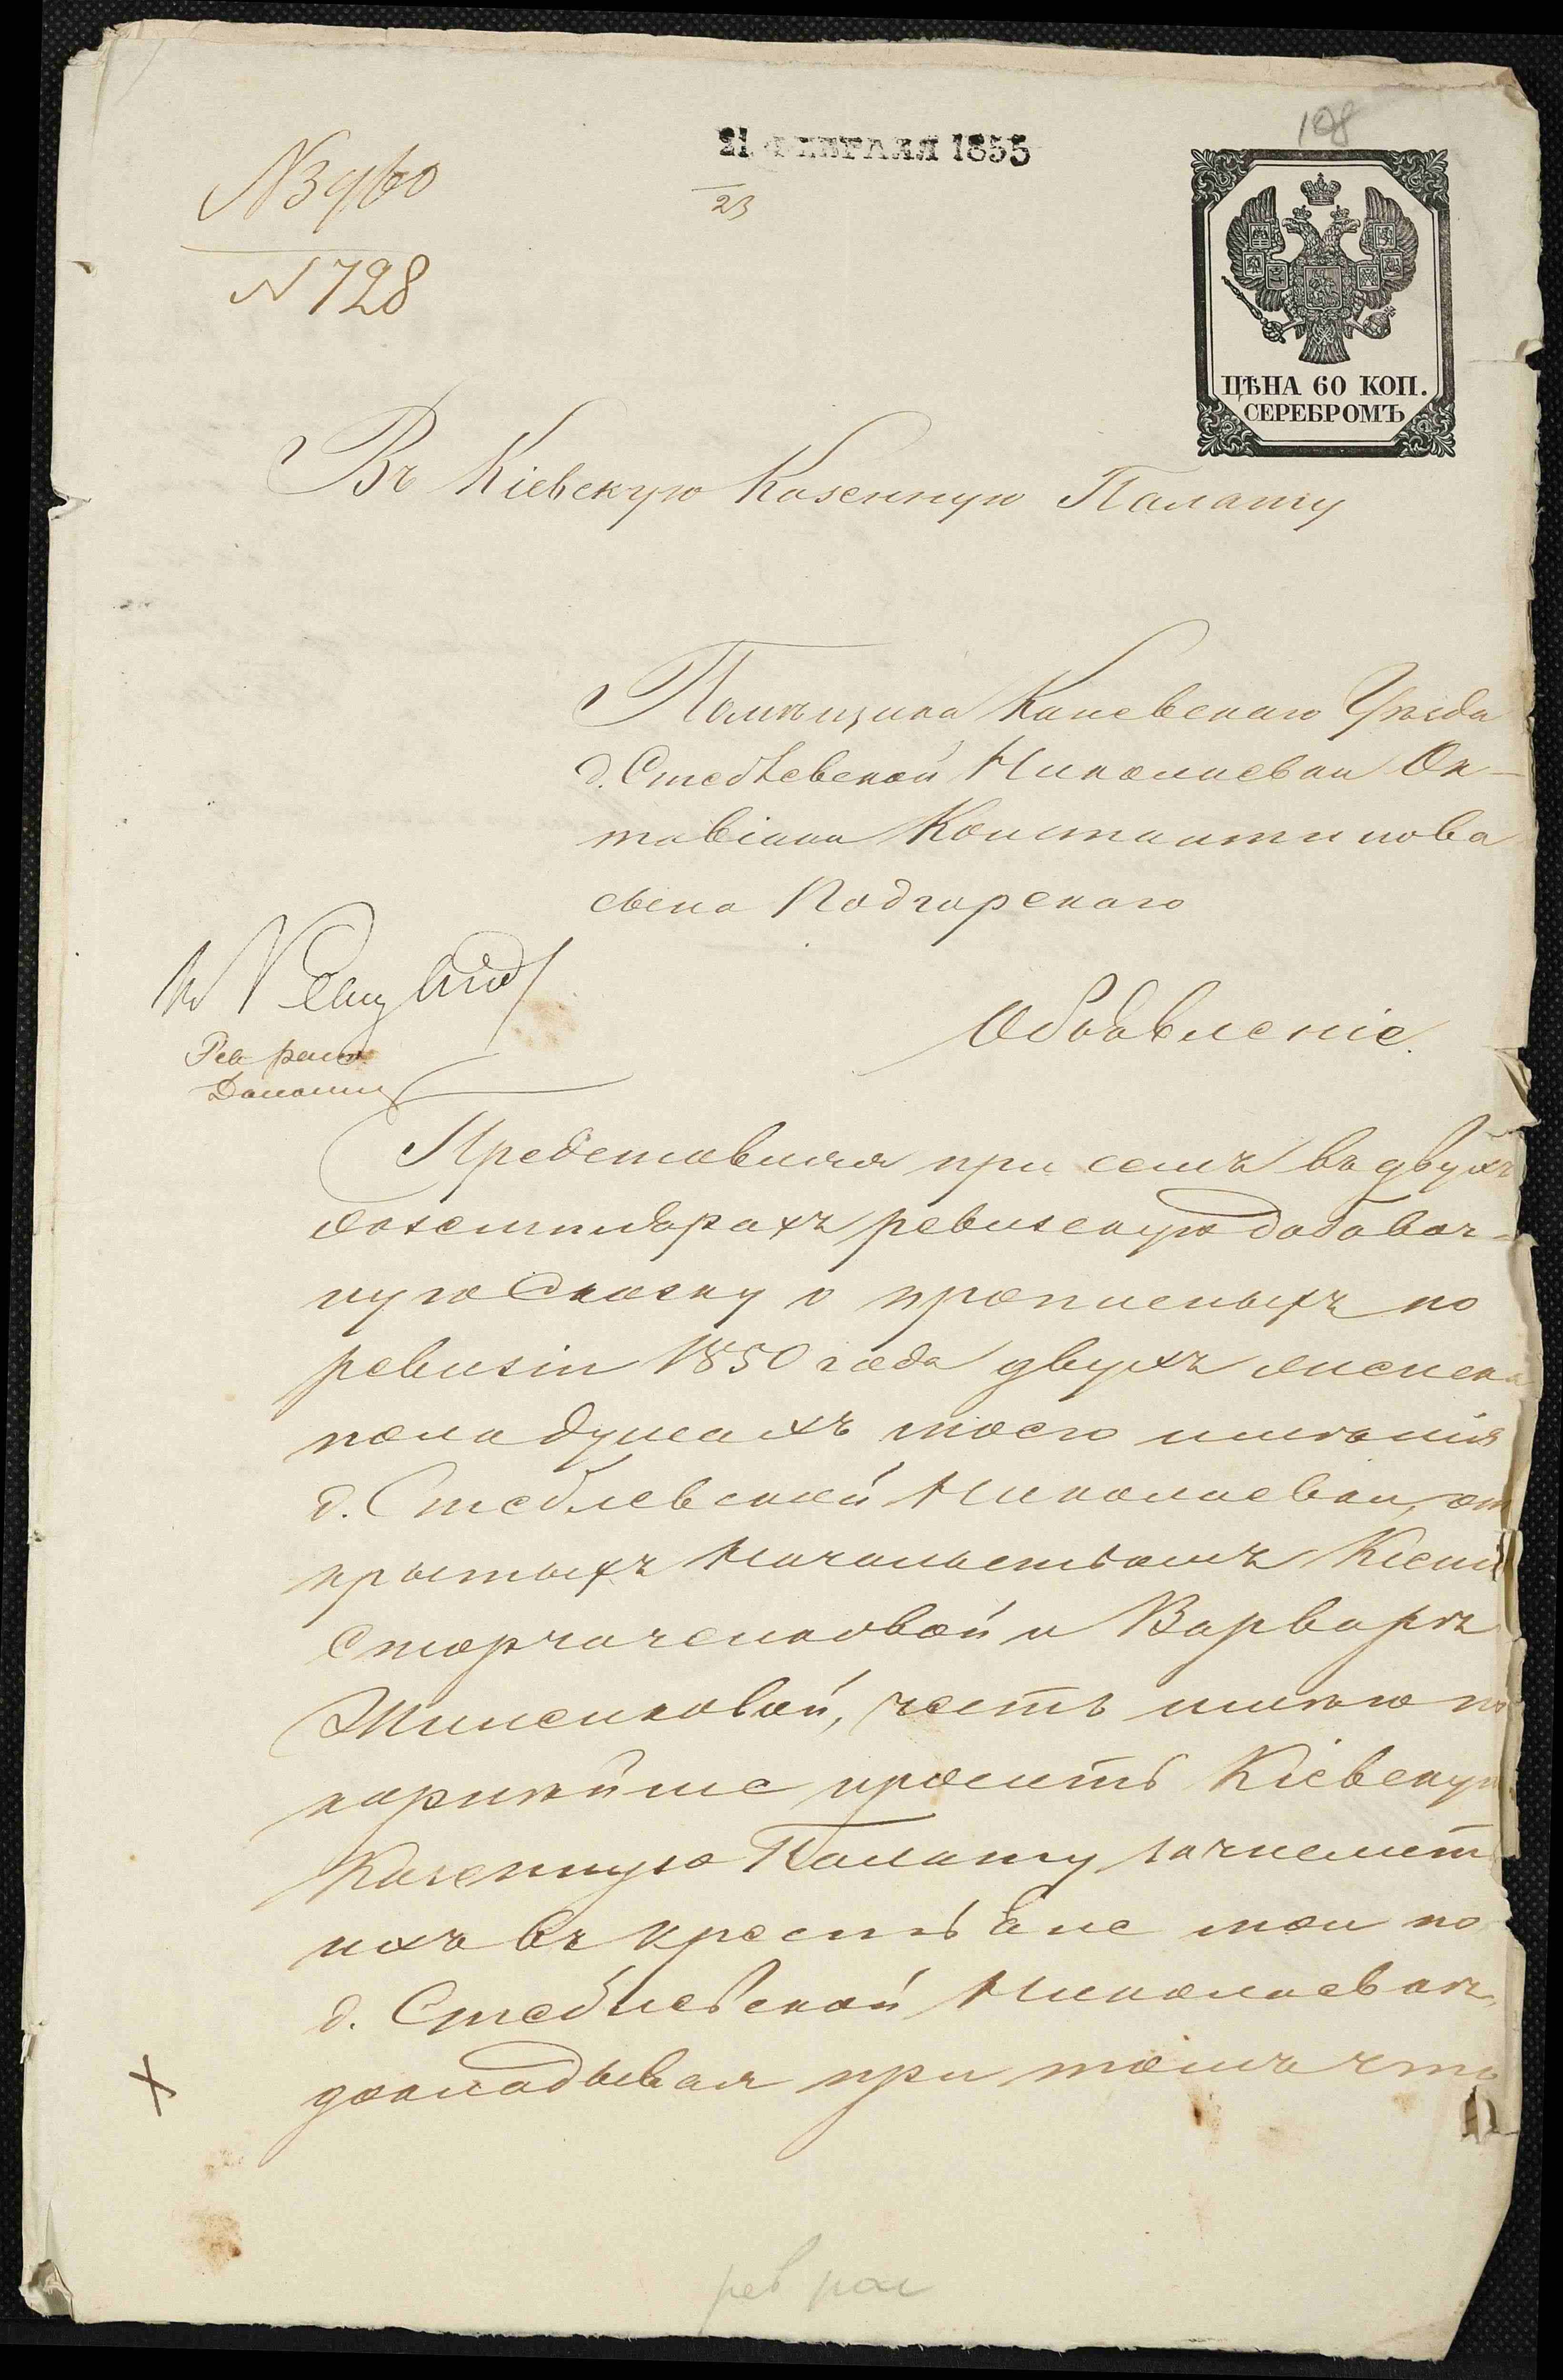 108
21 ФЕВРАЛЯ 1855
23
№ 3960
№ 728
ЦѢНА 60 КОП.
СЕРЕБРОМЪ
Въ Кіевскую Казенную Палату
Помѣщика Каневскаго Уѣзда
д. Стеблевской Николаевки Ок-
тавіана Константинова
сына Подгорскаго
Объявленіе.
Рев
Представляя при семъ въ двухъ
экземплярахъ ревизскую добавоч-
ную Сказку о прописныхъ по
ревизіи 1850 года двухъ женска
пола душахъ моего имѣнія
д. Стеблевской Николаевки, от
крытыхъ Начальствомъ Ксеніи
Сторчаченковой и Варварѣ
, честь имѣю по
корнѣйше просить Кіевскую
Казенную Палату зачислить
ихъ въ крестьяне мои по
д. Стеблевской Николаевкѣ,
докладывая при томъ что
рев